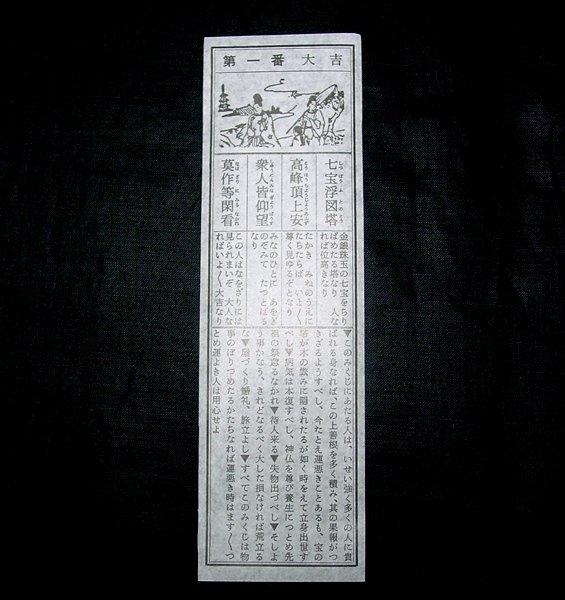 第一番 大吉
七宝浮図塔
高峰頂上安
衆人皆仰望
莫作等閑看
金銀珠玉の七宝をちり
ばめたる塔なり 人な
れば位高きなり
たかき みねのうえに
たちたらば いよ〳〵
尊く見ゆるぞとなり
みなのひとに あをぎ
のぞみて たつとばるゝ
なり
この人はなをざりには
見られまいぞ 大人な
ればいよ〳〵大吉なり
▼このみくじにあたる人は、いせい強く多くの人に貴
ばれる身なれば、この上善根を多く積み、其の果報がつ
きざるようすべし、今たとえ運悪きことあるも、宝の
塔が木の茂みに隠されたるが如く時をえて立身出世す
べし▼病気は本復すべし、神仏を尊び養生につとめ先
祖の祭怠るなかれ▼待人来る▼失物出づべし▼そしよ
う事かなう、されどなるべく大した損なければ荒立る
な▼庭づくり婚礼、旅立よし▼すべてこのみくじは物
事のぼりつめたるかたちなれば運悪き時はます〳〵つ
とめ運よき人は用心せよ